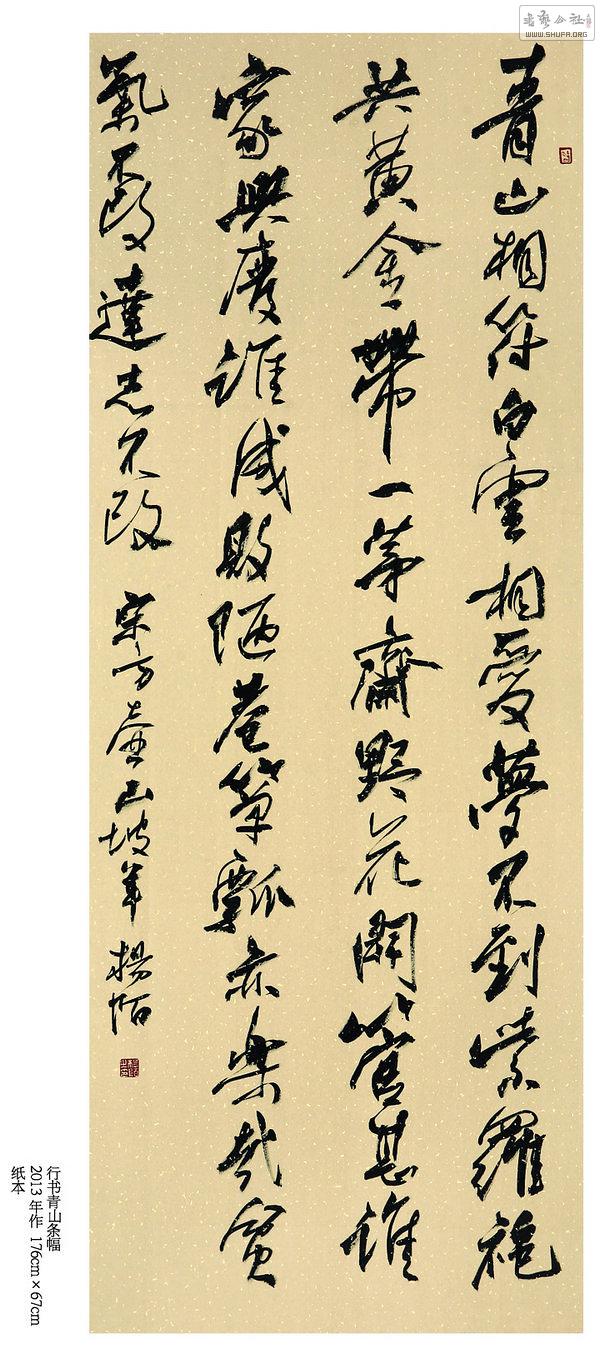 書藝公社
WWW.SHUFA.ORG
青山相待白雲相愛夢不到紫羅袍
共黃金帶一茅齋野花開管甚誰
家興廢誰成敗陋巷簞瓢亦樂哉貧
氣不改達志不改 宋方壺山坡羊 楊陌
行书青山条幅
2013 年作 176cm×67cm
纸本